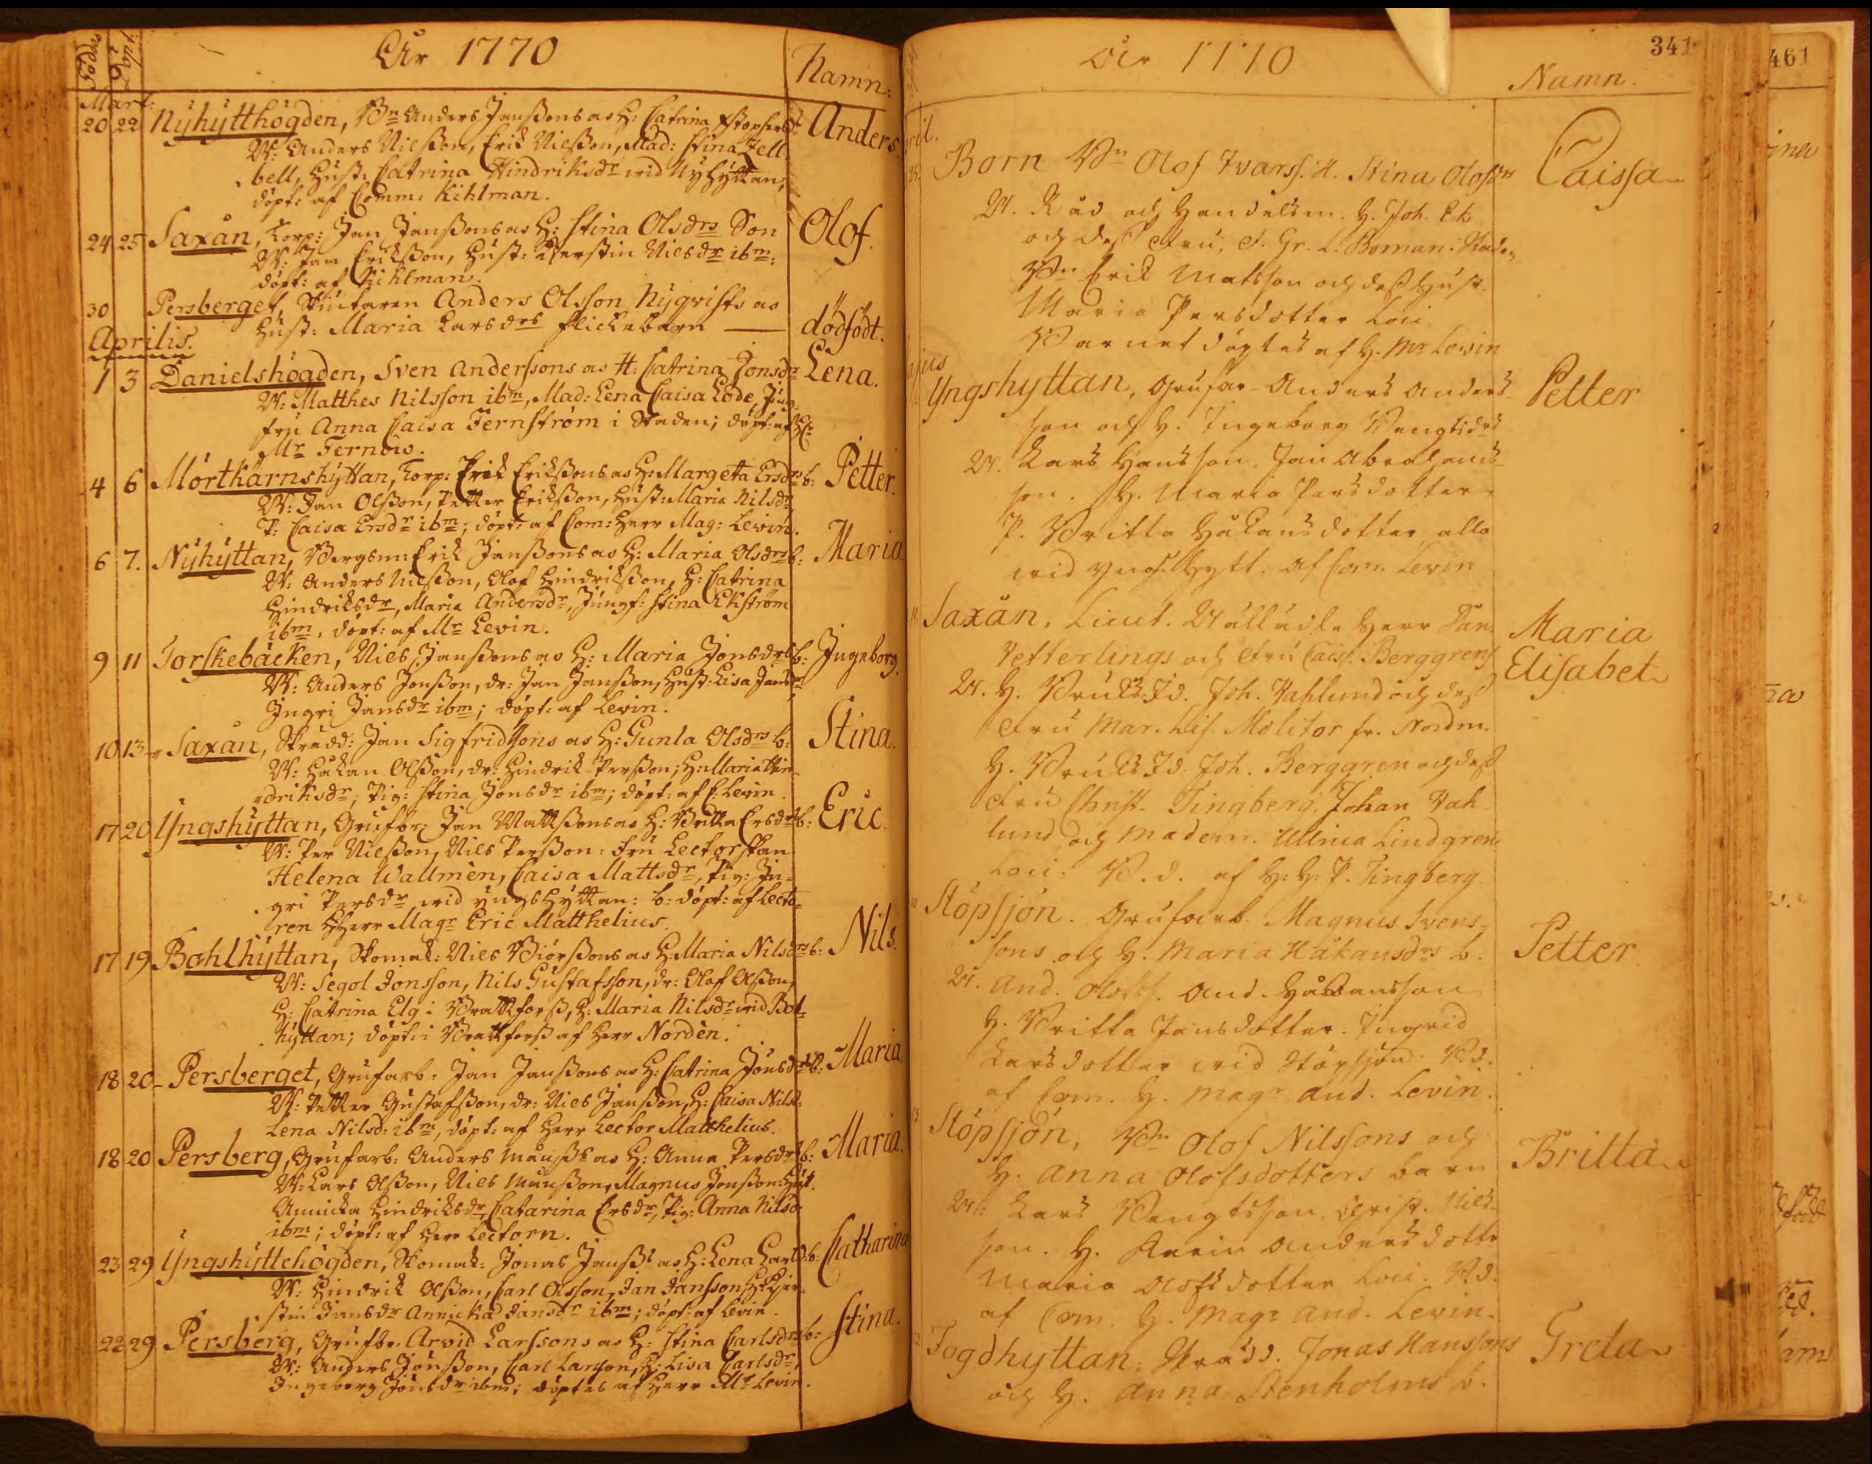 Födde
Döpt.
Åhr 1770
Namn:
Mart:
20 22 Nyhytthögden, Bm Anders Janßons as H: Catrina Anders.
W: Anders Nielßon, Erik Nielßon, Mad: Stina Fell-
bell, Hust: Catrina Hindriksdr wid Nyhyttan;
döpt: af Comm: Kihlman.
24 25 Saxån, Torp: Jan Janßons as H: Stina Olsdrs Son Olof.
W: Jan Erikßon, Hust: Kierstin Nielsdr ibm;
döpt: af Kihlman.
30 Persberget, Anders Olsson Nyqvists as
Hust: Maria Larsdrs flickebarn dödfödt.
Aprilis.
1 3 Danielshögden, Sven Anderssons as H: Catrina Jonsdr Lena.
W: Matthes Nilsson ibm, Mad: Lena Caisa Lode, Jung-
fru Anna Caisa Fernström i Staden; döpt: af H:
Mr Fernöus.
4 6 Mörtkärnshyttan, Torp: Erik Erikßons as H: Margeta Ersdrs b: Petter.
W: Jan Olßon, Petter Erikßon, Hust: Maria Nilsdr
P: Caisa Ersdr ibm; döpt: af Com: Herr Mag: Levin.
6 7. Nyhyttan, Bergsmn Erik Janßons as H: Maria Olsdrs b: Maria
W: Anders Nielßon, Olof Hindrikßon, H: Catrina
Hindriksdr, Maria Andersdr, Jungf: Stina Ekström
ibm, döpt: af Mr Levin.
9 11 Torskebäcken, Niels Janßons as H: Maria Jonsdrs b: Ingeborg.
W: Anders Jonßon, dr: Jan Janßon, Hust: Lisa Jansdr
Ingri Jansdr ibm; döpt: af Levin.
10 13 Saxån, Skrädd: Jan Sigfridßons as H: Gunla Olsdrs b: Stina.
W: Håkan Olßon, dr: Hindrik Perßon, H: Maria Hin-
driksdr, Pig: Stina Jonsdr ibm; döpt: af C: Levin.
17 20 Yngshyttan, Grufar: Jan Mattßons as H: Britta Ersdrs b: Eric.
W: Per Nielßon, Niels Perßon: Fru Lectorskan
Helena Wallmén, Caisa Mattsdr, Pig: In-
gri Persdr wid Yngshyttan: b: döpt: af Lecto-
ren HHerr Magr Eric Matthelius.
17 19 Bohlhyttan, Skomak: Niels Biörßons as H: Maria Nilsdrs b: Nils.
W: Segol Jonsson, Nils Gustafsson, dr: Olof Olßon,
H: Catrina Elg i Brattforß, H: Maria Nilsdr wid Bol-
hyttan; döpt: i Brattforß af Herr Nordén.
18 20 Persberget, Grufarb: Jan Janßons as H: Catrina Jonsdrs b: Maria
W: Petter Gustafßon, dr: Niels Janßon, H: Caisa Nilsd:
Lena Nilsd: ibm, döpt: af Herr Lector Matthelius.
18 20 Persberg, Grufarb: Anders Månßs as H: Anna Persdrs b: Maria.
W: Lars Olßon, Niels Månßon, Magnus Jonßon: Hust.
Annicka Hindriksdr, Catarina Ersdr, Pig: Anna Nilsd:
ibm; döpt: af Herr Lectorn.
23 29 Yngshyttehögden, Skomak: Jonas Janßs as H: Lena Carlsd: b: Catharina
W: Hindrik Olßon, Carl Olsson, Jan Jansson, H: Kjer-
stin Jansdr Annicka Jansdr ibm; döpt: af Levin.
22 29 Persberg, Grufar. Arvid Larssons as H: Stina Carlsdrs b: Stina.
W: Anders Jonßon, Carl Larson, H: Lisa Carlsdr,
Ingeborg Jonsdr ibm; döptes af Herr Mr Levin.
Åhr 1770
341
Namn.
Born Bm Olof Ivarss. H. Stina Olofsdrs Caissa
W. Råd och Handelsm. H. Joh. Ek
och deß Fru, F. Gr. L. Boman. Staden
Bm Erik Matsson och deß Hust.
Maria Persdotter Loci.
Barnet döptes af H. Mr Levin
Yngshyttan, Grufar. Anders Anders- Petter
son och H. Ingeborg Bengtsdrs
W. Lars Hansson. Jan Abrahams-
son. H. Maria Persdotter.
P. Britta Håkansdotter, alla
wid Yngshytt. af Com. Levin
Saxån, Lieut. Wällädle Herr Dan Maria
Tetterlings och Fru Cais. Berggrens Elisabet
W. H. Bruksd. Joh. Wahlund och deß
Fru Mar. Lis. Molitor fr. Nordm.
H. Bruksd. Joh. Berggren och deß
Fru Christ. Tingberg. Johan Wah-
lund och Madem. Ullrica Lindgren
Loci. B. d. af H. H. P. Tingberg
Stöpsjön. Grufarb. Magnus Svens- Petter
sons och H. Maria Håkansdrs b.
W. And. Olofss. And. Håkansson
H. Britta Jansdotter. Ingrid
Larsdotter wid Stöpsjön. B. d.
af Com. H. Magr And. Levin.
Stöpsjön, Bm Olof Nilssons och Britta
H. Anna Olofsdotters barn
W. Lars Bengtsson. Christ. Nils-
son. H. Karin Andersdotter
Maria Olofsdotter Loci. B. d.
af Com. H. Magr And. Levin.
Fogdhyttan: Skrädd. Jonas Hanssons Greta
och H. Anna Stenholms b.
461